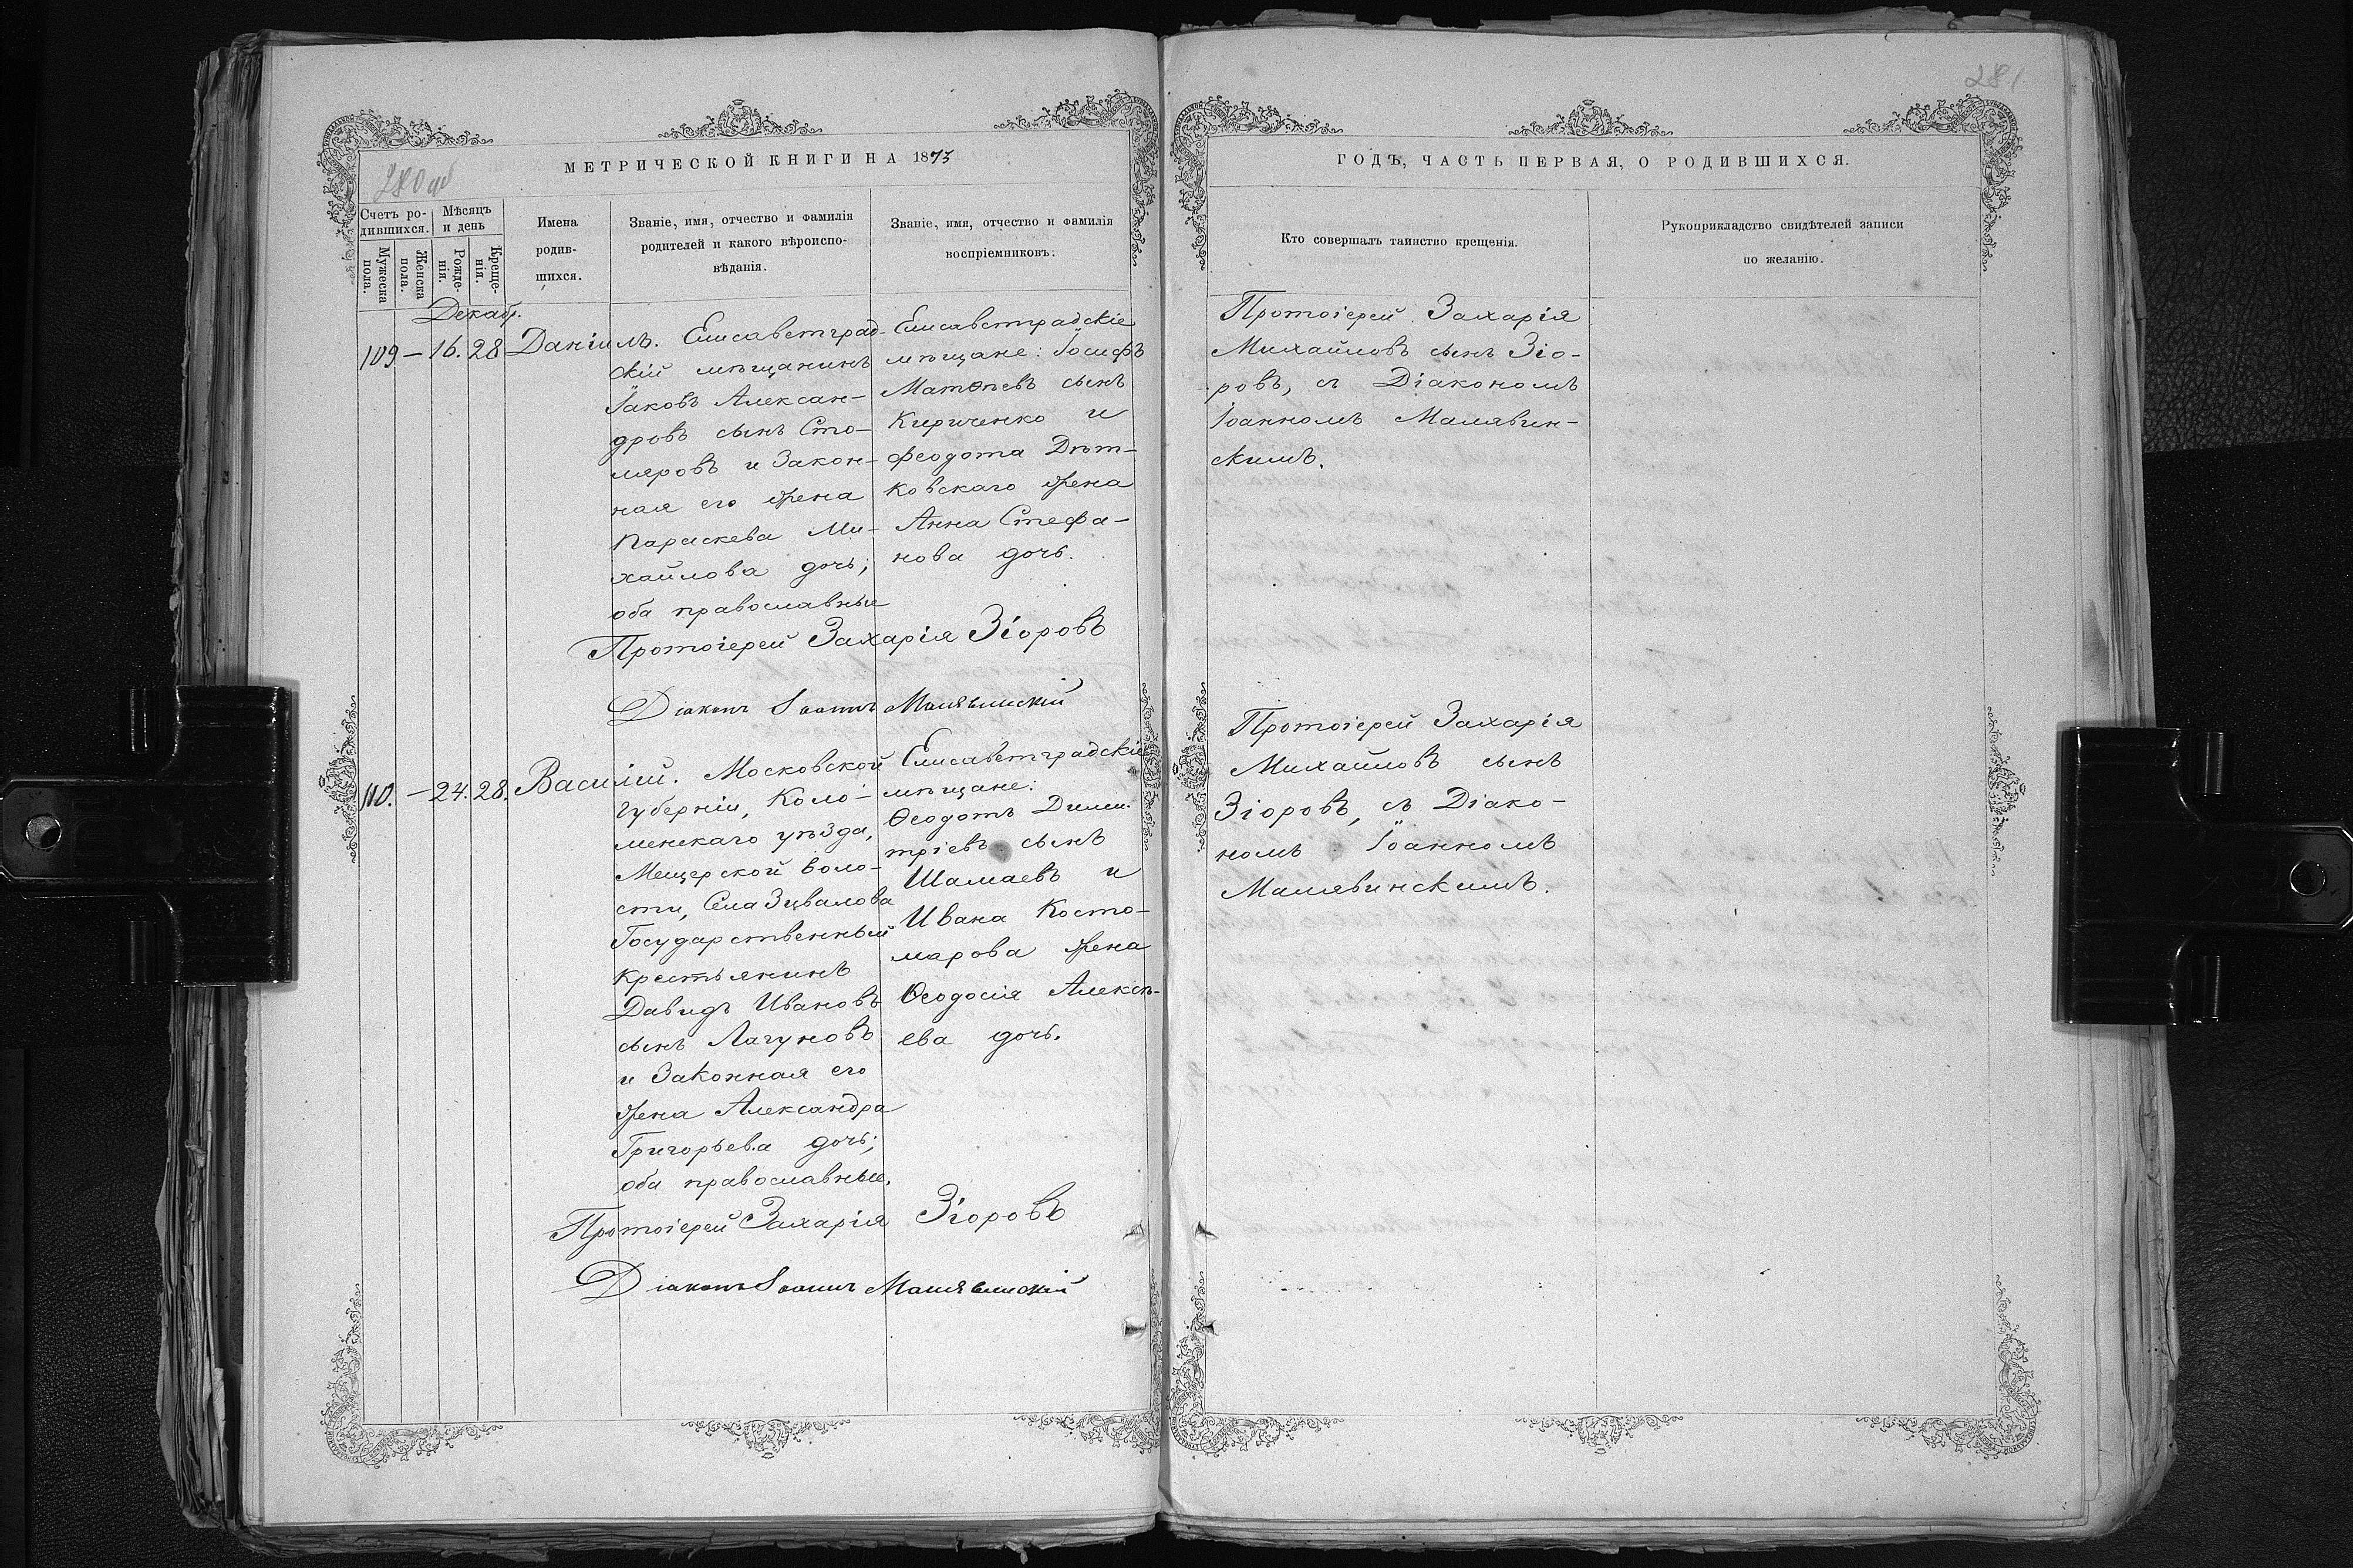 280 об
МЕТРИЧЕСКОЙ КНИГИ НА 1873
Счетъ ро-
дившихся.
Мужеска
пола.
Женска
пола.
Мѣсяцъ
и день
Рожде-
нія.
Креще-
нія.
Имена
родив-
шихся.
Званіе, имя, отчество и фамилія
родителей и какого вѣроиспо-
вѣданія.
Званіе, имя, отчество и фамилія
воспріемниковъ.
Декабр.
109 — 16. 28 Даніилъ.
Елисаветград-
скій мѣщанинъ
Іаковъ Алексан-
дровъ сынъ Сто-
ляровъ и Закон-
ная его жена
Параскева Ми-
хайлова дочь;
оба православные
Елисаветградскіе
мѣщане: Іосифъ
Матѳѣевъ сынъ
Кириченко и
Феодота Дѣт-
ковскаго жена
Анна Стефа-
нова дочь.
Протоіерей Захарія Зіоровъ
Діаконъ Іоаннъ Малявинскій
110. — 24. 28. Василій.
Московской
губерніи, Коло-
менскаго уѣзда,
Мещерской воло-
сти, Села
Государственный
крестьянинъ
Давидъ Ивановъ
сынъ Лагуновъ
и Законная его
жена Александра
Григорьева дочь;
оба православные.
Елисаветградскіе
мѣщане:
Ѳеодотъ Дими-
тріевъ сынъ
Шамаевъ и
Ивана Косто-
марова жена
Ѳеодосія Алексѣ-
ева дочь.
Протоіерей Захарія Зіоровъ
Діаконъ Іоаннъ Малявинскій
281
ГОДЪ, ЧАСТЬ ПЕРВАЯ, О РОДИВШИХСЯ.
Кто совершалъ таинство крещенія.
Рукоприкладство свидѣтелей записи
по желанію.
Протоіерей Захарія
Михайловъ сынъ Зіо-
ровъ, съ Діакономъ
Іоанномъ Малявин-
скимъ.
Протоіерей Захарія
Михайловъ сынъ
Зіоровъ, съ Діако-
номъ Іоанномъ
Малявинскимъ.